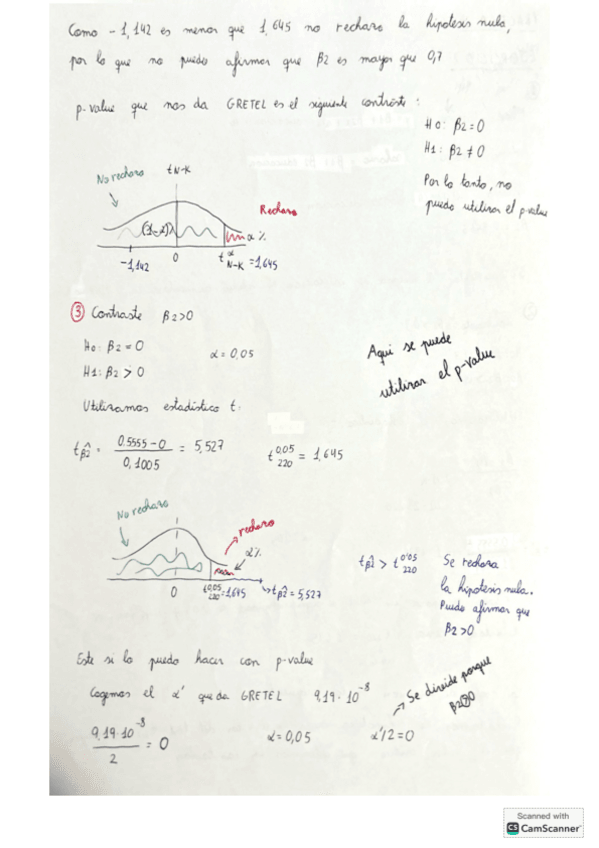 Como -1,142 es menor que 1,645 no rechazo la hipotesis nula,
por lo que no puedo afirmar que β2 es mayor que 0,7
p-value que nos da GRETEL es el siguiente contraste:
H0: β2 = 0
H1: β2 ≠ 0
Por lo tanto, no
puedo utilizar el p-value
No rechazo
t N-K
Rechazo
(1-α)%
α%
-1,142
0
t α N-K = 1,645
③ Contraste β2>0
H0: β2 = 0
α = 0,05
H1: β2 > 0
Aqui se puede
utilizar el p-value
Utilizamos estadistico t:
tβ̂2 = 0.5555-0 / 0,1005 = 5,527
t 0,05 220 = 1,645
No rechazo
rechazo
α%
0
t 0,05 220 = 1,645
tβ̂2 = 5,527
tβ̂2 > t 0'05 220
Se rechaza
la hipotesis nula.
Puedo afirmar que
β2>0
Este si lo puedo hacer con p-value
Cogemos el α' que da GRETEL 9,19·10⁻⁸
Se divide porque
β2>0
9,19·10⁻⁸ / 2 = 0
α = 0,05
α'/2 = 0
Scanned with
CS CamScanner